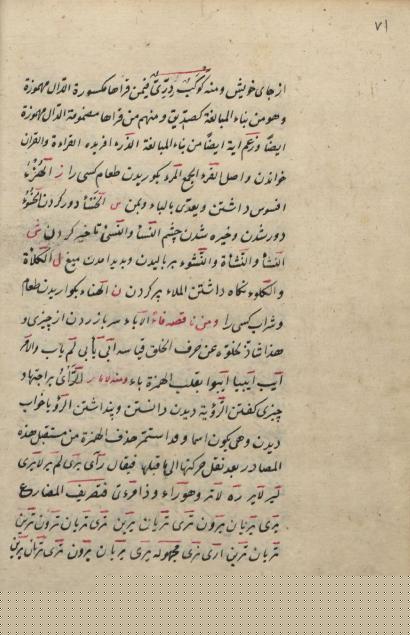 ٧١
از جای خویش ومنه کوکب درّیّ فیمن قراها مکسورة الدال مهموزة
وهو من بناء المبالغة کصدیق ومنهم من قراها مضمومة الدال مهموزة
ایضًا وزعم انه ایضًا من بناء المبالغة الذرء افریدن القراءة والقران
خواندن واصل القرء الجمع المرء کواریدن طعام کسی را ز الهزء
افسوس داشتن ویعدّی بالباء وبمن س الخسأ دور کردن الخسوء
دور شدن وخیره شدن چشم النسأ والنسئ تاخیر کردن ش
النشأ والنشأة والنشوء بر بالیدن وپدید امدن میغ ل الکلاءة
والکلوء نگاه داشتن الملاء پر کردن ن الهناء کواریدن طعام
وشراب کسی را ومن ناقصه فاء الاباء سر باز زدن از چیزی و
هذا شاذ لخلوه عن حرف الحلق قیاسه ابی یابی لم یاب والامر
ایب ایبیا ایبوا بقلب الهمزة یاء ومنه لاما ر الرأی
چیزی کفتن الرؤیة دیدن دانستن وپنداشتن الرؤیا خواب
دیدن وهی یکون اسما وقد استمر حذف الهمزة من مستقبل هذه
المصادر بعد نقل حرکتها الی ما قبلها فیقال رأی یری لم یر لایری
لیر لایر ره لاتر وهو راء وذا مرءی فتصریف المضارع
یری یریان یرون تری تریان یرین تری تریان ترون ترین
تریان ترین اری نری مجهوله یری یریان یرون تری تریان یرین